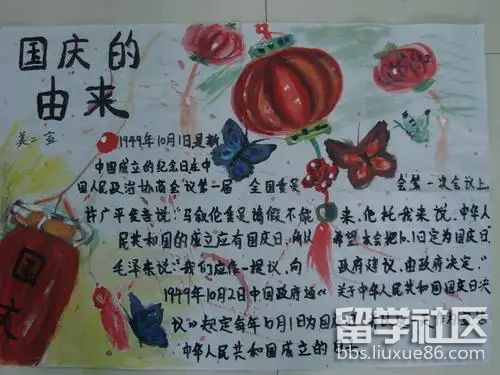 国庆的
由来
美二宣
1949年10月1日是新
中国成立的纪念日在中
国人民政治协商会议第一届 全国委员 会第一次会议上
许广平发言说"马叙伦委员请假不能 来,他托我来说,中华人
民共和国的成立应有国庆日,所以 希望本会把10.1日定为国庆日
毛泽东说"我们应作一提议,向 政府建议,由政府决定."
1949年10月2日中国政府通《 关于中华人民共和国国庆日决
议》规定每年10月1日为国庆
中华人民共和国成立的日
国庆
留学社区
bbs.liuxue86.com